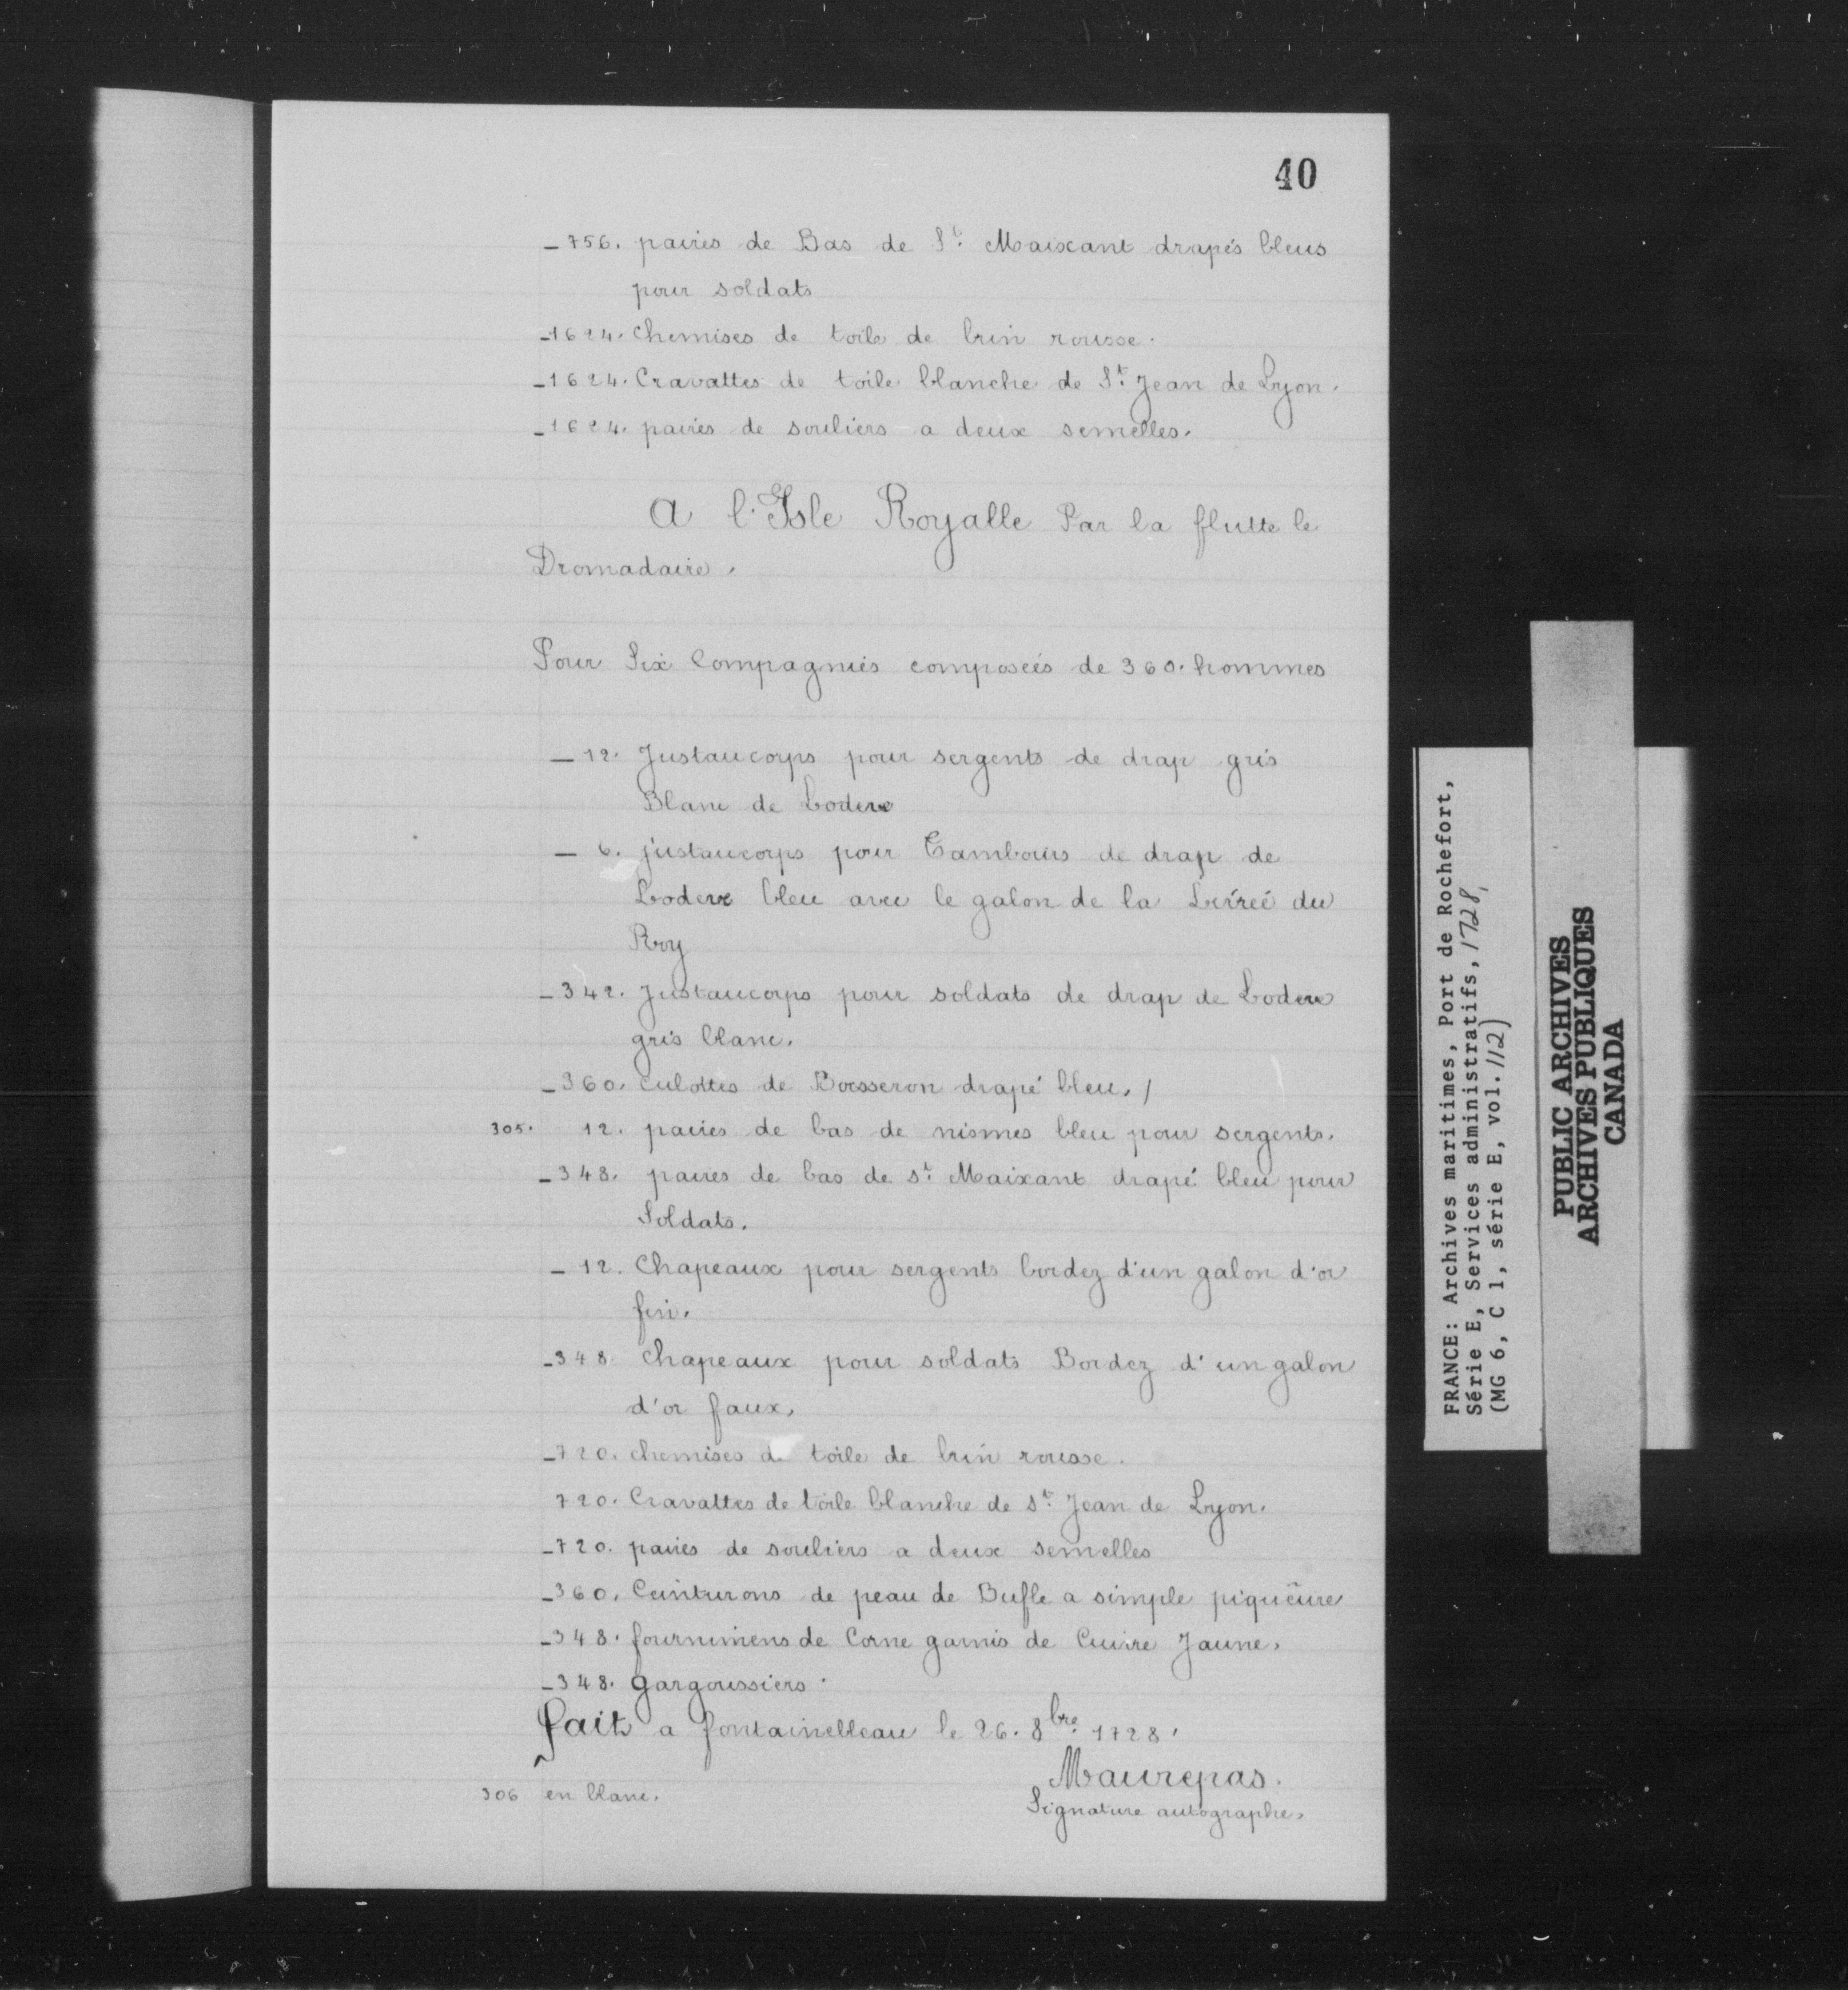 40
_756. paires de Bas de St. Maixant drapés bleus
pour soldats
_1624. Chemises de toile de brin rousse.
_1624. Cravattes de toile blanche de St. Jean de Lyon.
_1624. paires de souliers a deux semelles.
A l'Isle Royalle Par la flutte le
Dromadaire.
Pour Six Compagnies composées de 360. hommes
_12. Justaucorps pour sergents de drap gris
Blanc de Lodeve
_ 6. justaucorps pour Tambours de drap de
Lodeve bleu avec le galon de la Livreé du
Roy
_342. Justaucorps pour soldats de drap de Lodeve
gris blanc.
_360. culottes de Boisseron drapé bleu. /
305. 12. paires de bas de nismes bleu pour sergents.
_348. paires de bas de st. Maixant drapé bleu pour
Soldats.
_ 12. Chapeaux pour sergents bordez d'un galon d'or
fin.
_348. Chapeaux pour soldats Bordez d'un galon
d'or faux.
_720. chemises de toile de brin rousse.
720. Cravattes de toile blanche de st. Jean de Lyon.
_720. paires de souliers a deux semelles
_360. Ceinturons de peau de Bufle a simple piqueüre
_348. fournimens de Corne garnis de Cuivre Jaune.
_348. gargoussiers.
fait a fontainebleau le 26. 8bre. 1728.
Maurepas.
306 en blanc.
Signature autographe.
FRANCE: Archives maritimes, Port de Rochefort,
Série E, Services administratifs, 1728,
(MG 6, C 1, série E, vol. 112)
PUBLIC ARCHIVES
ARCHIVES PUBLIQUES
CANADA